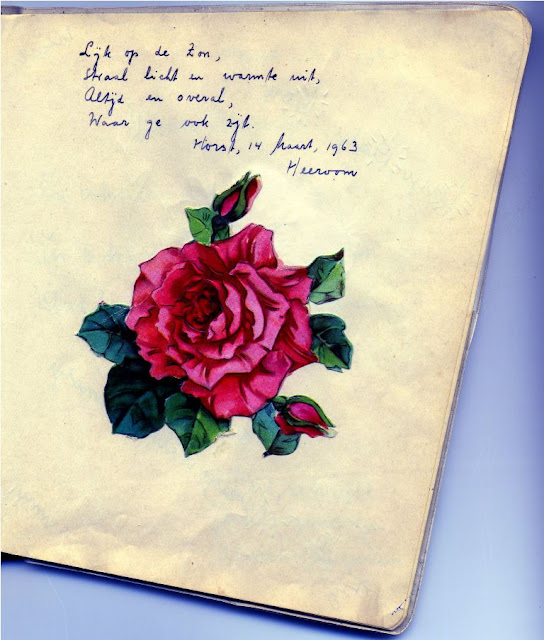 Lijk op de Zon,
Straal licht en warmte uit,
Altijd en overal,
Waar ge ook zijt.
Horst, 14 Maart, 1963
Heeroom